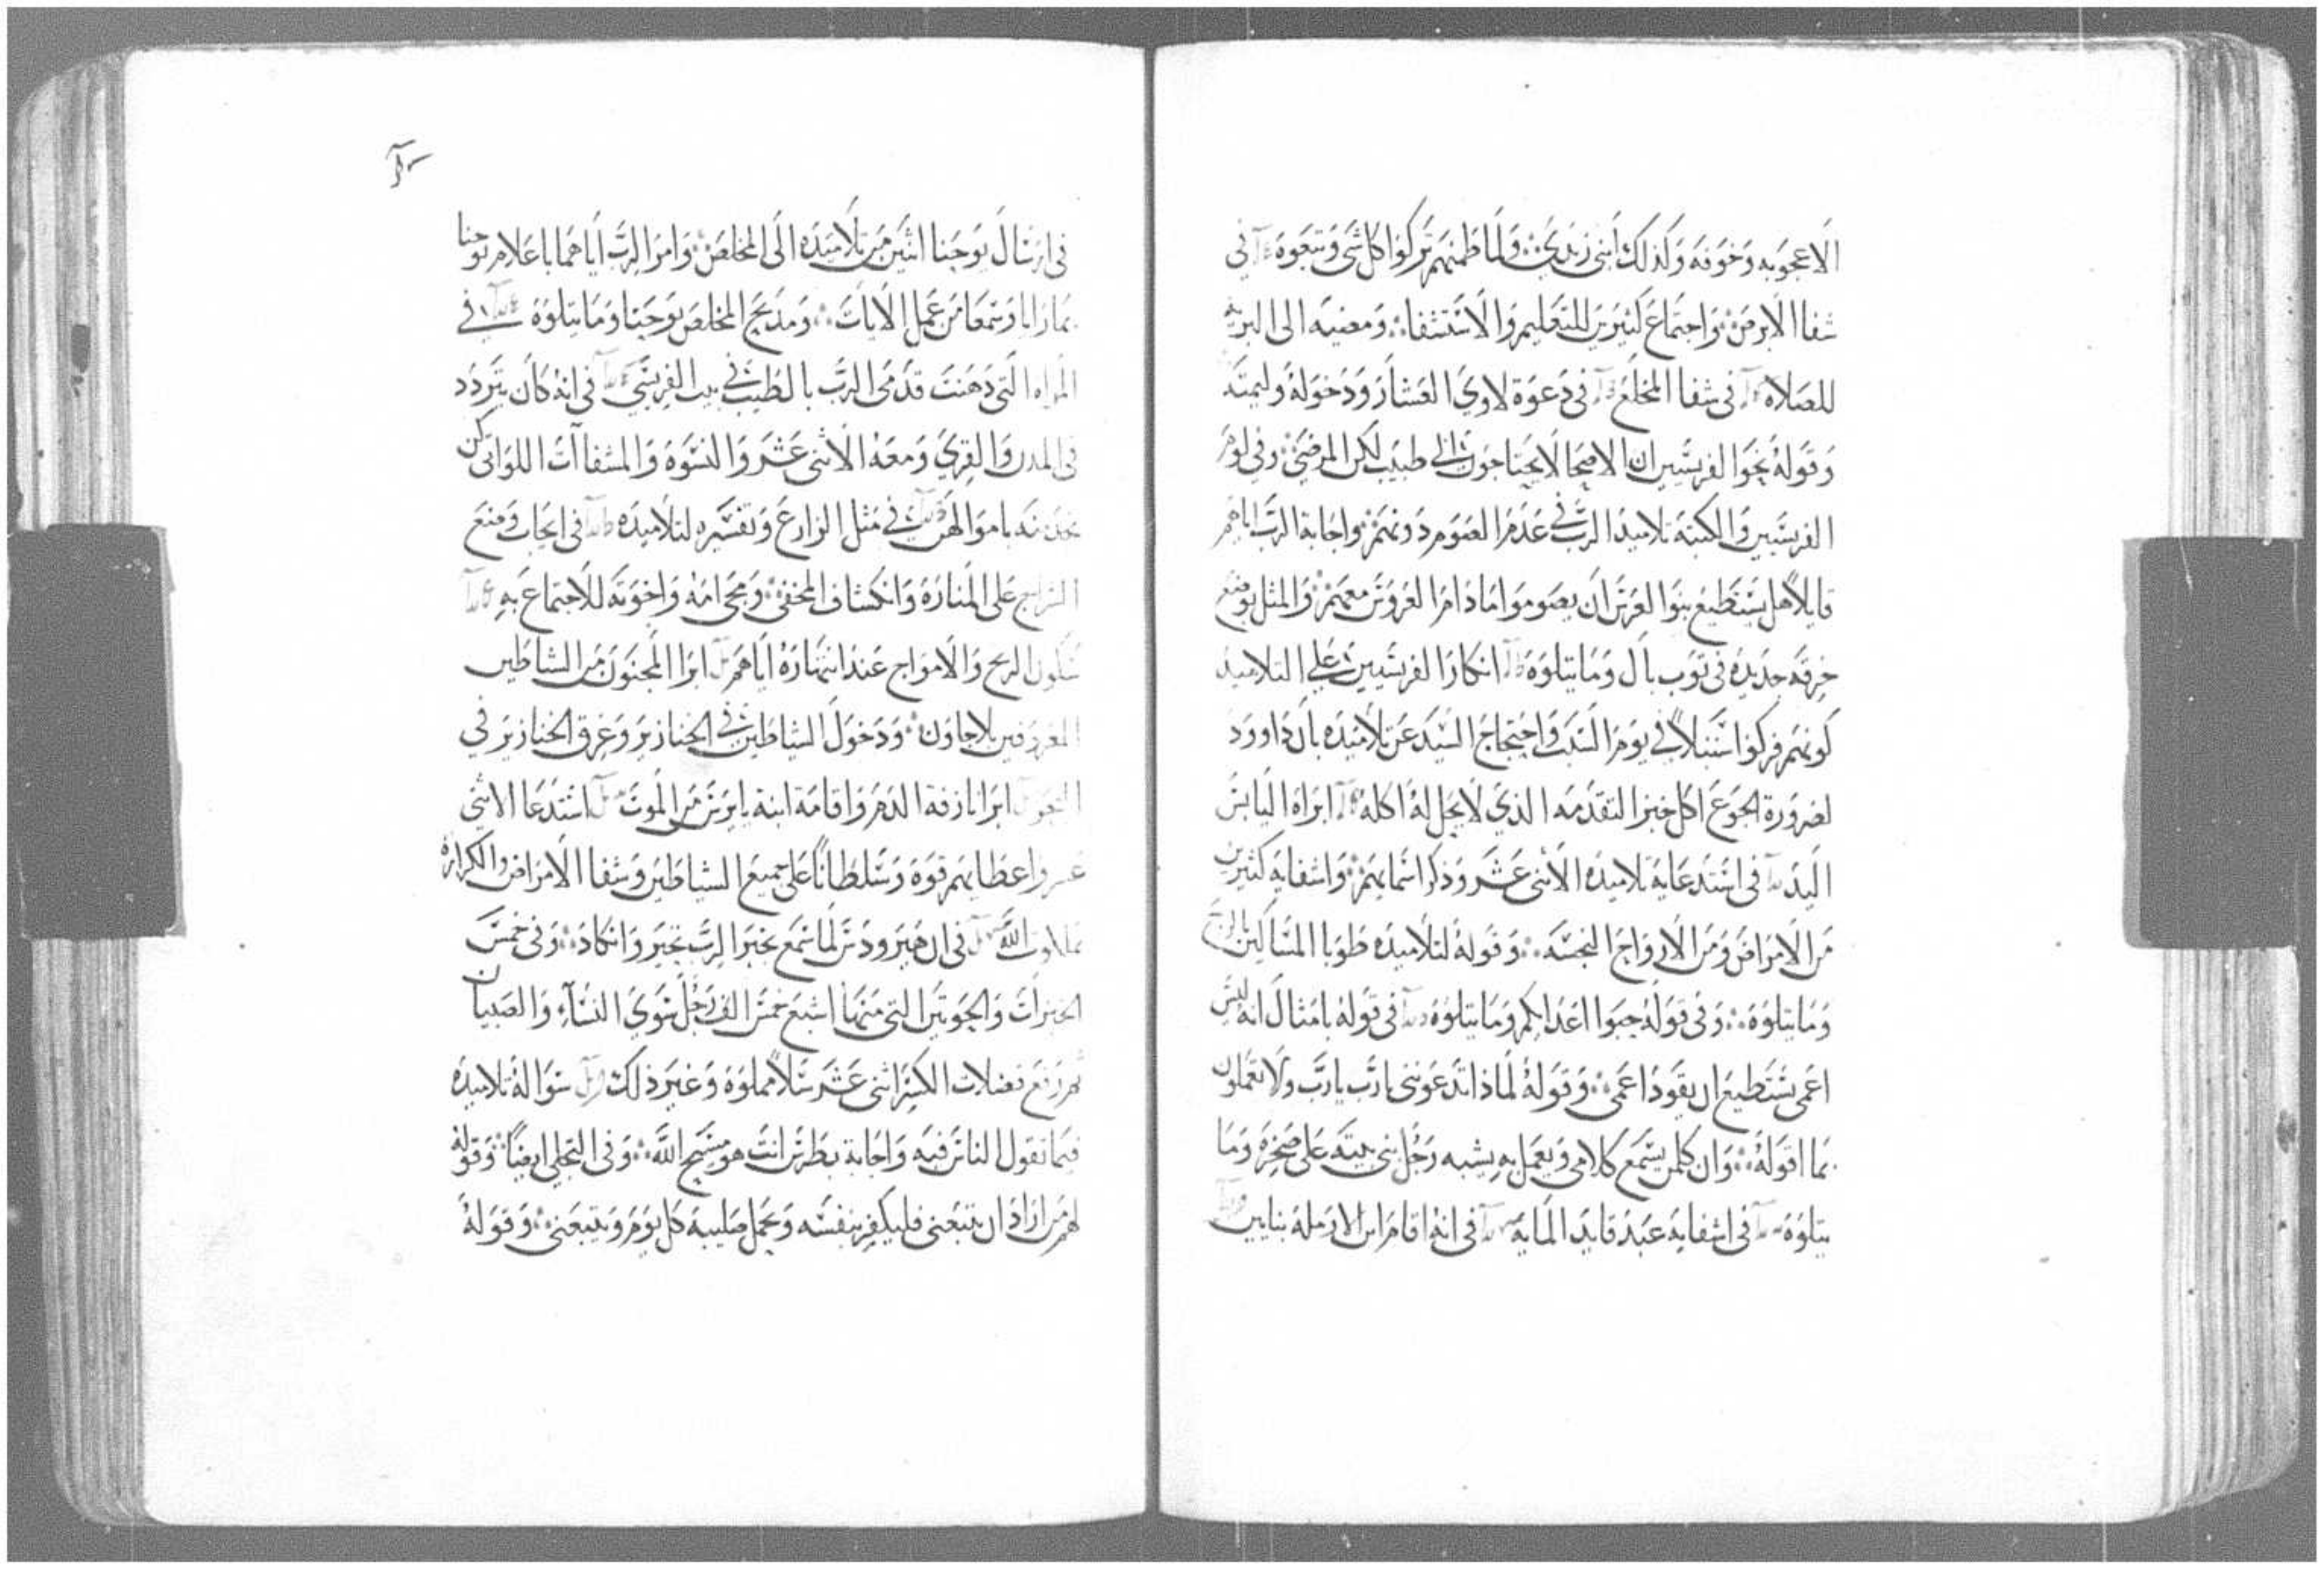 الاعجوبه وخوفه وكذلك ابني زبدي ولما طمنهم تركوا كل شي وتبعوه في
شفا الابرص واجتماع كثيرين للتعليم والاستشفا ومضيه الى البريه
للصلاه في شفا المخلع في دعوة لاوي العشار ودخوله وليمته
وقوله نحوا الفريسيين ان الاصحا لا يحتاجون الى طبيب لكن المرضى وفي لوم
الفريسيين والكتبه تلاميد الرب في عدم الصوم دونهم واجابة الرب اياهم
قايلاً هل يستطيع بنوا العرس ان يصوموا ما دام العروس معهم والمثل بوضع
خرقه جديده في توب بال وما يتلوه انكار الفريسيين على التلاميد
كونهم فركوا سنبلاً في يوم السبت واحتجاج السيد عن تلاميده بان داوود
لضرورة الجوع اكل خبز التقدمه الذي لا يحل له اكله ابراه اليابس
اليد في استدعايه تلاميده الاثنى عشر وذكر اسمايهم واشفايه كثيرين
من الامراض ومن الارواح النجسه وقوله لتلاميده طوبا المساكين بالروح
وما يتلوه وفي قوله حبوا اعدايكم وما يتلوه في قوله بامثال انه ليس
اعمى يستطيع ان يقود اعمى وقوله لماذا تدعونني يا رب يا رب ولا تعملون
بما اقوله وان كلمن يسمع كلامي ويعمل به يشبه رجل بني بيته على صخره وما
يتلوه في اشفايه عبد قايد المايه في انه اقام ابن الارمله بنايين
في ارسال يوحنا اثنين من تلاميده الى المخلص وامر الرب اياهما باعلام يوحنا
بما رايا وسمعا من عمل الايات ومديح المخلص يوحنا وما يتلوه في
المراه التي دهنت قدمى الرب بالطيب في بيت الفريسي في انه كان يتردد
في المدن والقرى ومعه الاثنى عشر والنسوه والمشفاآت اللواتي كن
يخدمنه باموالهن في مثل الزارع وتفسيره لتلاميده في ايجاب وضع
السراج على المناره وانكشاف المخفى ومجى امه واخوته للاجتماع به
سكون الريح والامواج عند انتهاره اياهم ابرا المجنون من الشاطين
المعروفين بلاجاون ودخول الشاطين في الخنازير وغرق الخنازير في
ابرا نازفة الدم واقامة ابنة يايرس من الموت استدعا الاثني
عشر واعطايهم قوه وسلطاناً على جميع الشياطين وشفا الامراض والكرازه
بملكوت الله في ان هيرودس لما سمع بخبر الرب تحير وانكاد وفي خمس
الخبزات والحوتين التي منها اشبع خمس الف رجل سوى النسآء والصبيان
ثم رفع فضلات الكسر اثنى عشر سلاً مملوه وغير ذلك سواله تلاميده
فيما تقول الناس فيه واجابة بطرس انت هو مسيح الله وفي التجلي ايضاً وقوله
لهم من اراد ان يتبعني فليكفر بنفسه ويحمل صليبه كل يوم ويتبعني وقوله